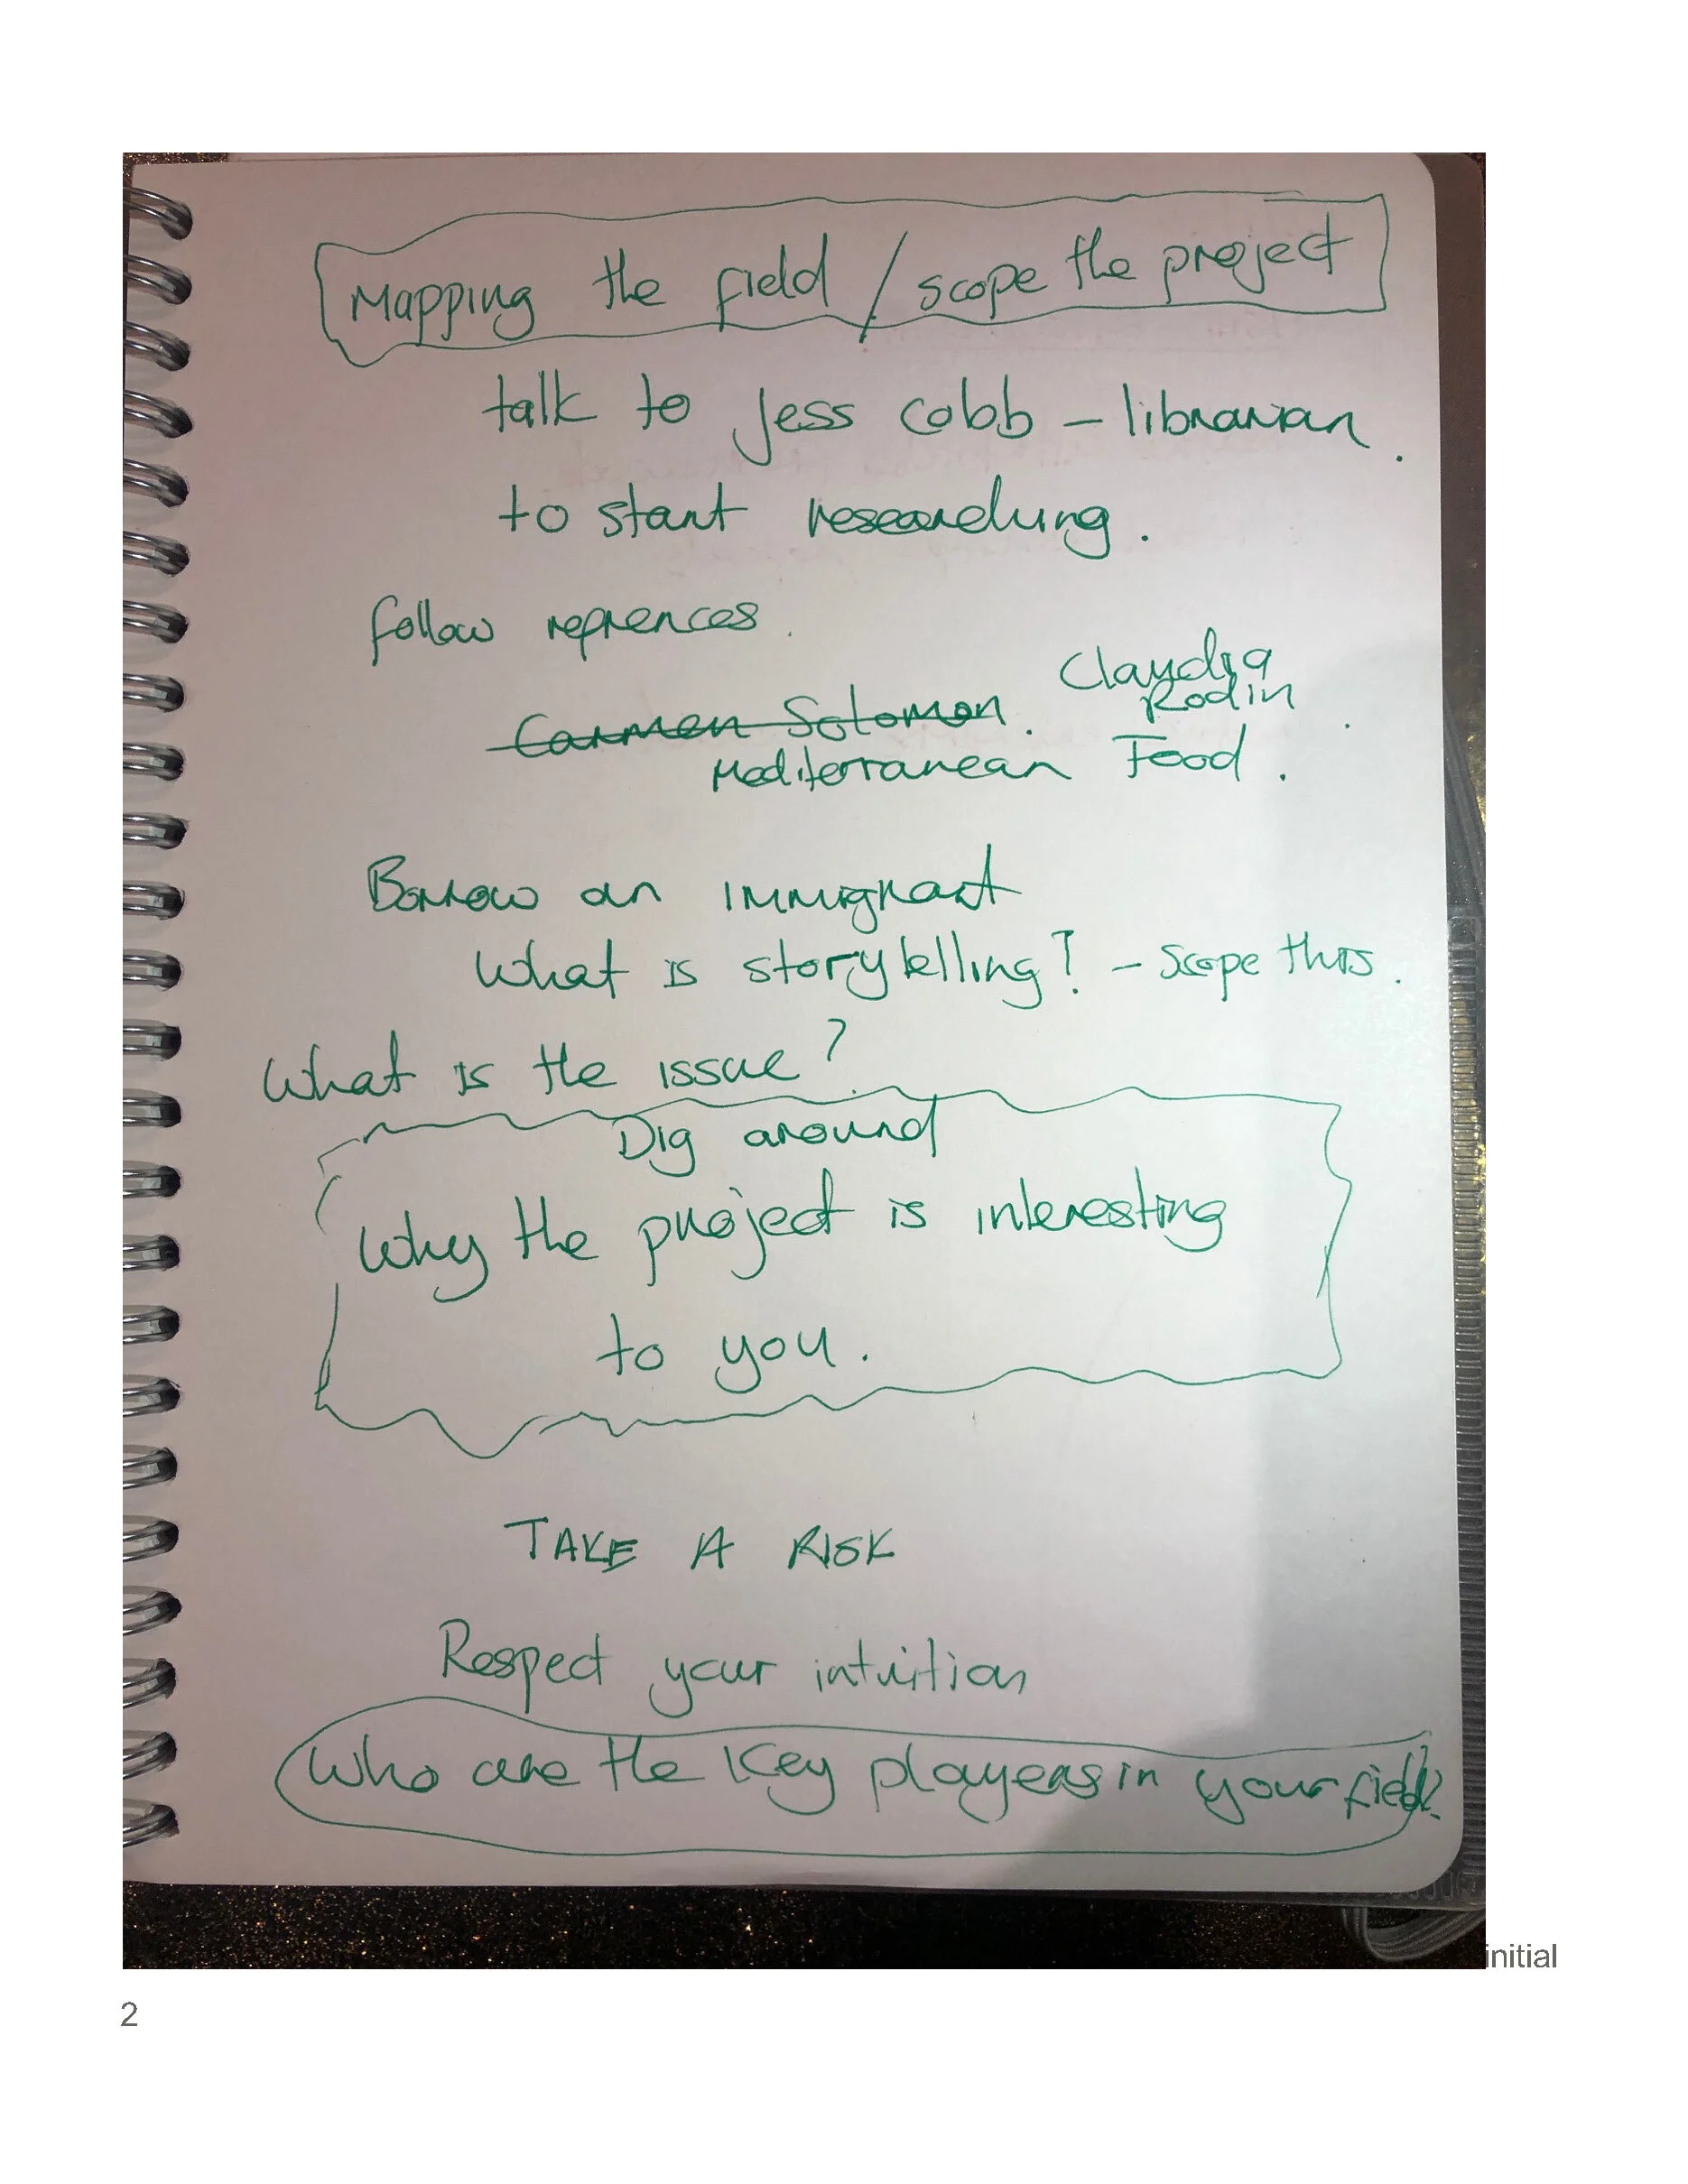 Mapping the field / scope the project
talk to Jess Cobb – librarian.
to start researching.
follow refrences.
Claudia
Rodin
Carmen Solomon.
Mediterranean Food.
Borrow an Immigrant
What is storytelling? – Scope this.
What is the issue?
Dig around
Why the project is interesting
to you.
TAKE A RISK
Respect your intuition
Who are the Key players in your field?
initial
2